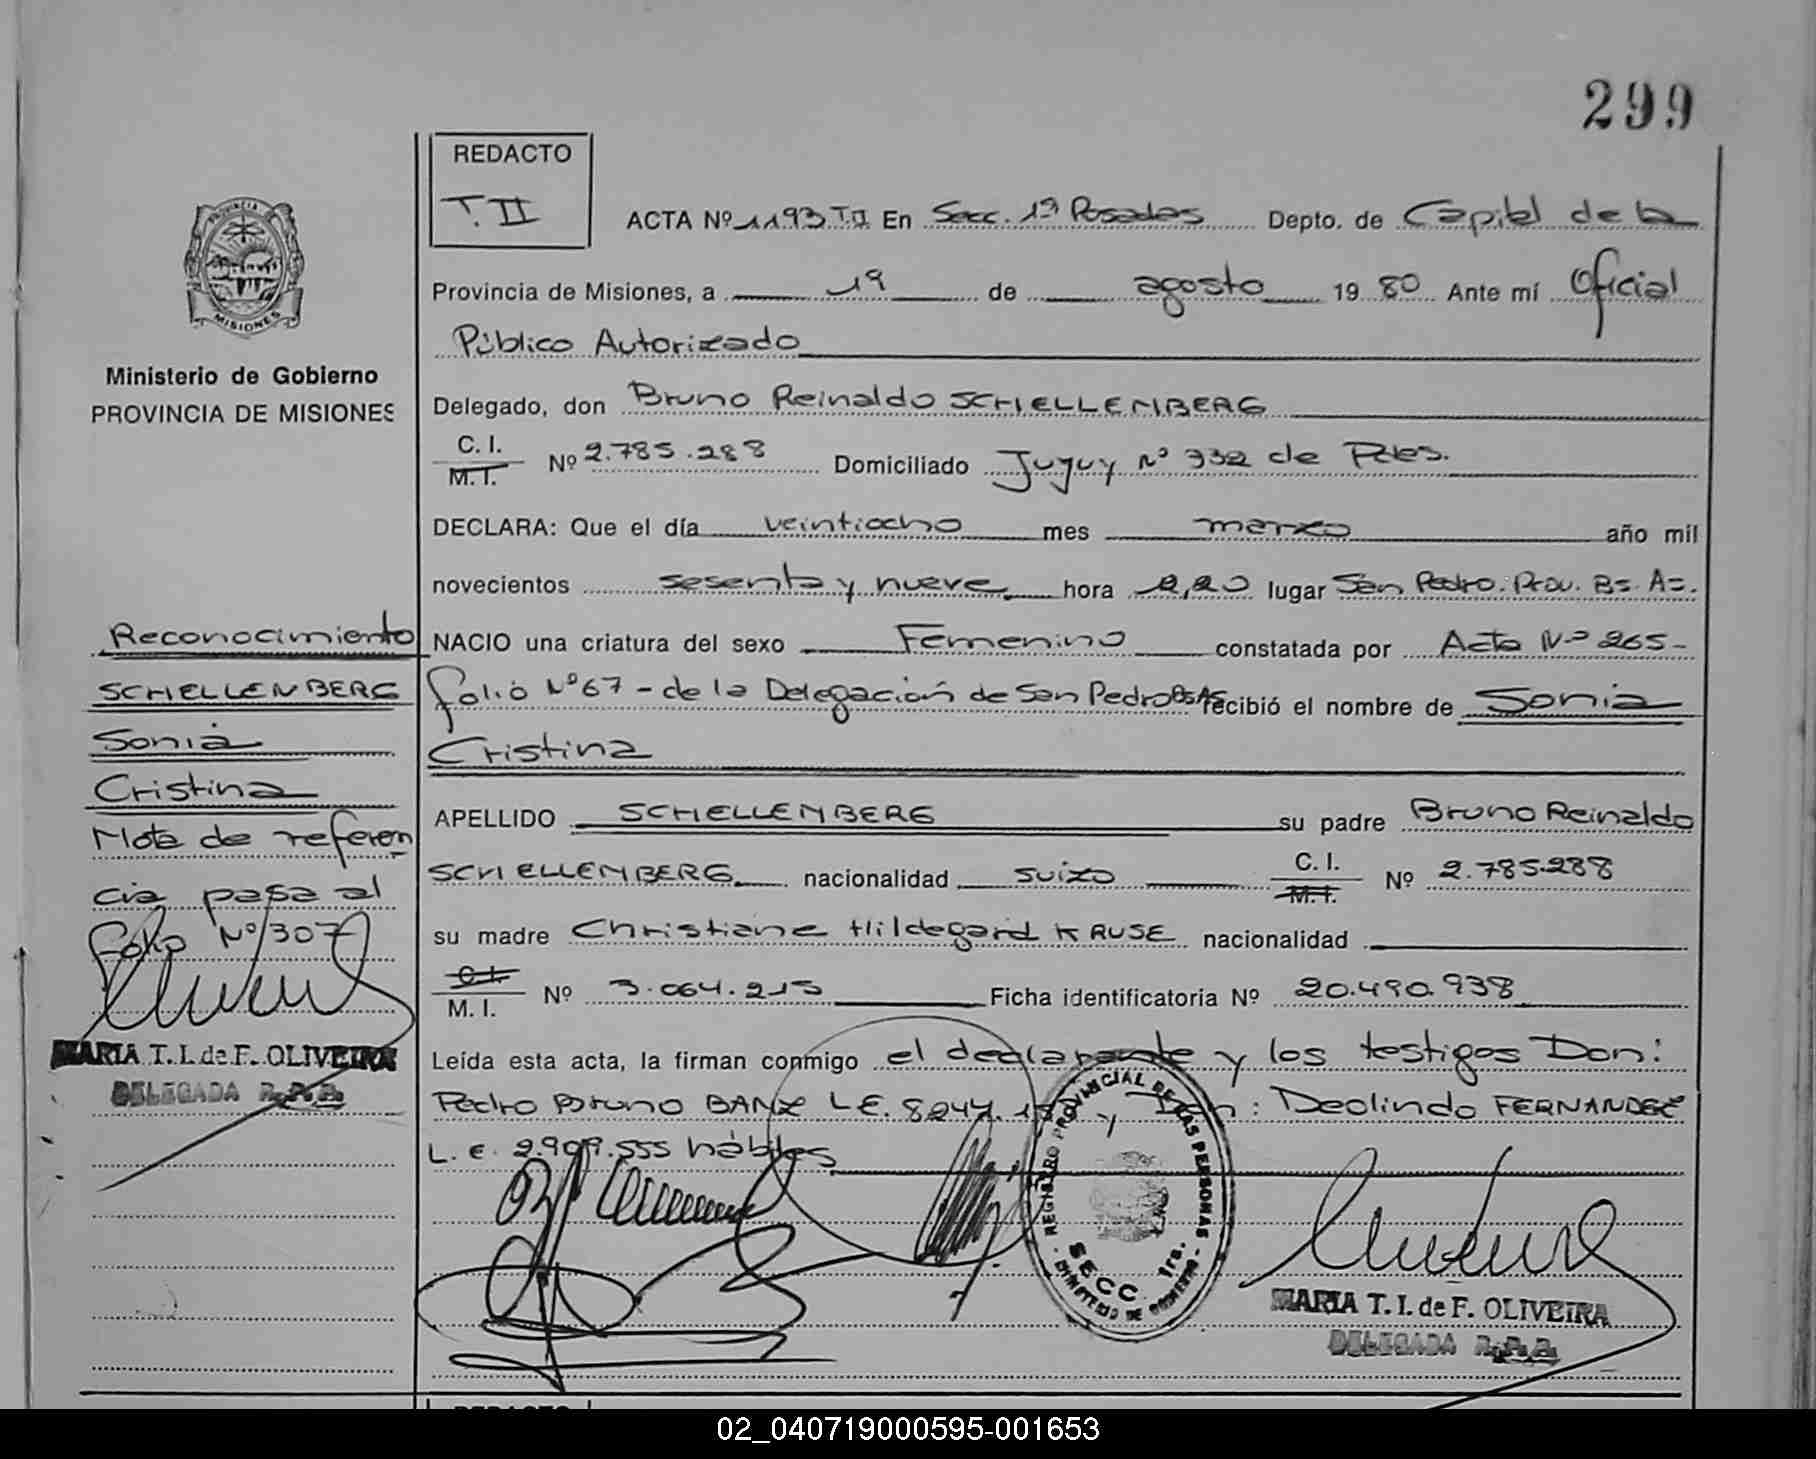 299
REDACTO
T. II
ACTA Nº 1193 T.II En Secc. 1ª Posadas Depto. de Capital de la
Provincia de Misiones, a 19 de agosto 19 80 Ante mí Oficial
Público Autorizado
PROVINCIA DE
MISIONES
Ministerio de Gobierno
PROVINCIA DE MISIONES
Delegado, don Bruno Reinaldo SCHELLEMBERG
C. I.
M. I. Nº 2.785.288 Domiciliado Jujuy Nº 332 de Pdas.
DECLARA: Que el día veintiocho mes marzo año mil
novecientos sesenta y nueve hora 2,20 lugar San Pedro. Prov. Bs. As.
NACIO una criatura del sexo Femenino constatada por Acta Nº 265-
folio Nº 67 - de la Delegación de San Pedro Bs As recibió el nombre de Sonia
Cristina
APELLIDO SCHELLEMBERG su padre Bruno Reinaldo
SCHELLEMBERG nacionalidad suizo C. I.
M. I. Nº 2.785.288
su madre Christiane Hildegard KRUSE nacionalidad
C. I.
M. I. Nº 3.064.213 Ficha identificatoria Nº 20.490.938
Leída esta acta, la firman conmigo el declarante y los testigos Don:
Pedro Bruno BANZ L.E. y Don: Deolindo FERNANDEZ
L. E. 2.909.555 hábiles
Reconocimiento
SCHELLENBERG
Sonia
Cristina
Nota de referen
cia pasa al
folio Nº 307
MARIA T. I. de F. OLIVEIRA
DELEGADA R.P.P.
REGISTRO PROVINCIAL DE LAS PERSONAS
SECC. 1ra.
MINISTERIO DE GOBIERNO
MARIA T. I. de F. OLIVEIRA
DELEGADA R.P.P.
REDACTO
02_040719000595-001653